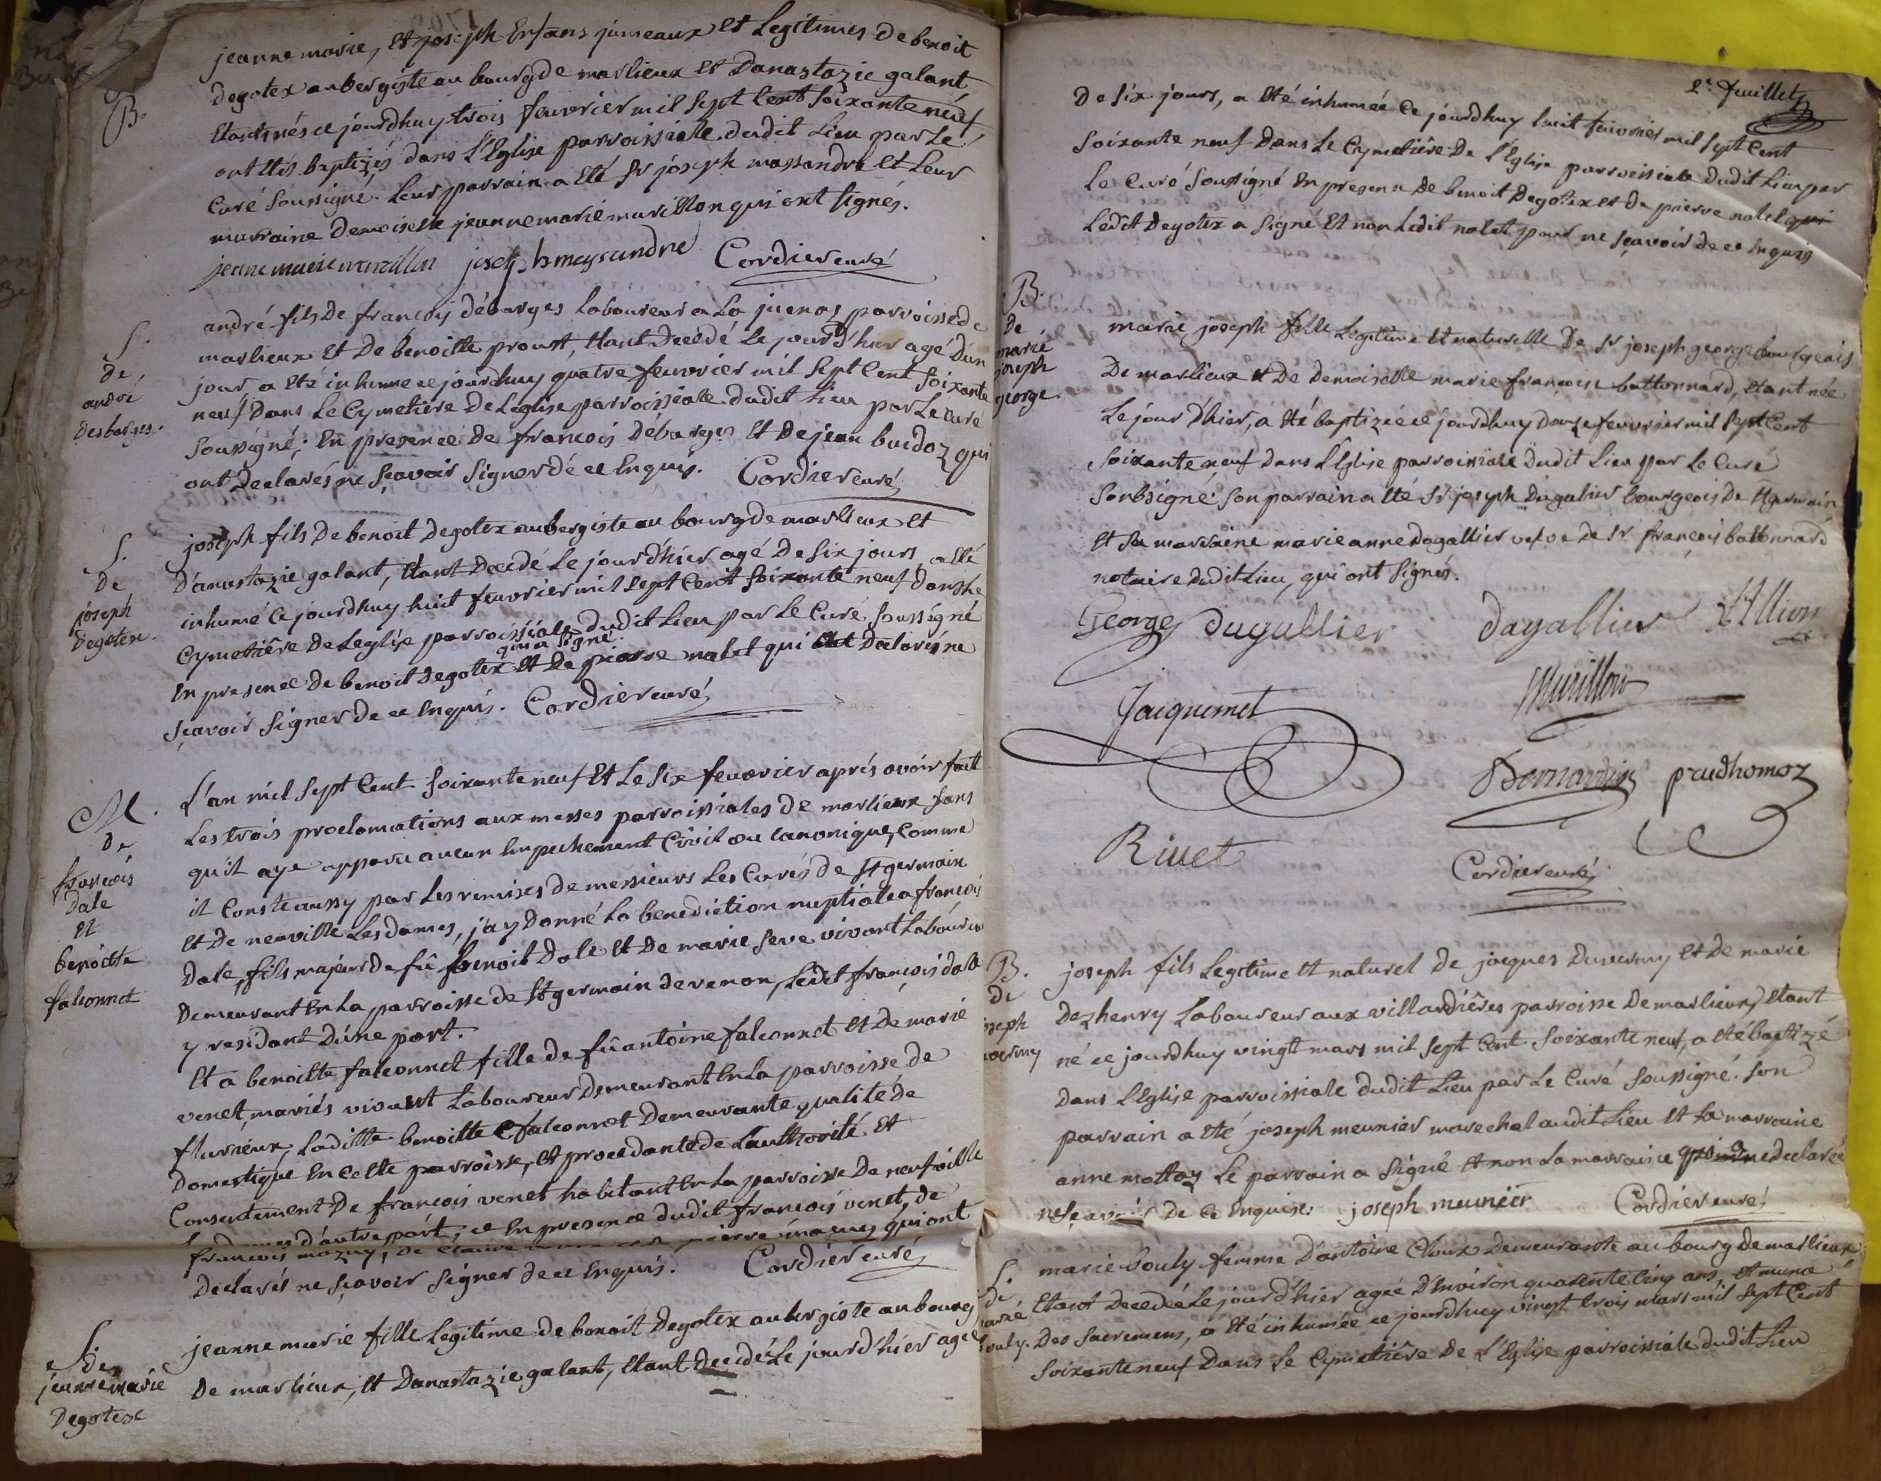 B.
jeanne marie, et joseph Enfans jumeaux et Legitimes de benoit
degotex aubergiste au bourg de marlieux et Danastazie galant,
Etant nés ce jourdhuy trois feuvrier mil sept Cent soixante neuf,
ont étés baptizés dans l'Eglise parroissiale dudit Lieu par Le
Curé soussigné. Leur parrain a été Sr joseph massandre et Leur
marraine demoiselle jeanne marie marillon qui ont signés.
jeanne marie marillon joseph massandre Cordier curé
S.
de
andré
desbarges.
andré fils De françois débarges Laboureur a La juenas parroisse de
marlieux et De benoitte proust, Etant Decedé Le jour D'hier agé D'un
jour, a été inhumé ce jourdhuy quatre feuvrier mil sept Cent soixante
neuf Dans Le Cymetière de L'eglise parroissiale dudit Lieu par Le curé
soussigné; En presence De françois débarges et De jean buidoz qui
ont Declarés ne sçavoir signer dé ce Enquis. Cordier curé
S.
De
joseph
Degotex.
joseph fils De benoit degotex aubergiste au bourg de marlieux et
D'anastazie galant, Etant Decedé Le jour d'hier agé De six jours, a été
inhumé Ce jourdhuy huit feuvrier mil sept Cent soixante neuf dans Le
Cymetière De L'eglise parroissiale dudit Lieu par Le Curé soussigné
qui a signé
En presence De benoit degotex et De pierre nalet qui a Declaré ne
sçavoir signer de ce Enquis. Cordier curé
M.
de
françois
Dale
et
benoitte
falconnet
L'an mil sept Cent soixante neuf et Le six feuvrier aprés avoir fait
Les trois proclamations aux messes parroissiales de marlieux sans
qu'il aye apparu aucun Empechement Civil ou Canonique, Comme
il Conste aussy par Les remises de messieurs Les Curés de St germain
et De neuville Les dames, j'ay Donné La benediction nuptiale a françois
Dale, fils majeur de fû benoit Dale et De marie seve vivant Laboureur
Demeurant En La parroisse de St germain de renon, Ledit françois dale
y residant D'une part.
Et a benoitte falconnet fille de fû antoine falconnet et De marie
venet, mariés vivant Laboureur Demeurant En La parroisse de
fluvieux, Laditte benoitte falconnet Demeurante qualité de
Domestique En cette parroisse, et procedante de L'authorité et
Consentement De françois venet habitant En La parroisse De neufville
D'autre part, ce En presence dudit françois venet, de
françois
Declarés ne sçavoir signer de ce Enquis. Cordier curé
S.
de
jeanne marie
Degotex
jeanne marie fille Legitime de benoit Degotex aubergiste au bourg
De marlieux, et Danastazie galant, Etant decedée Le jour d'hier agée
2e. feuillet
De six jours, a été inhumée Ce jourdhuy huit feuvrier mil sept Cent
soixante neuf Dans Le Cymetière De L'Eglise parroissiale dudit Lieu par
Le Curé soussigné En presence De benoit Degotex et De pierre nalet qui
Ledit Degotex a signé Et non Ledit nalet pour ne sçavoir de ce Enquis
B.
de
marie
joseph
george.
marie joseph fille Legitime Et naturelle De Sr joseph george bourgeois
De marlieux et De Demoiselle marie françoise battonnard, Etant née
Le jour D'hier, a été baptizée cé jourdhuy douze feuvrier mil sept Cent
soixante neuf dans L'Eglise parroissiale dudit Lieu par Le Curé
soubsigné: son parrain a été Sr joseph Dagalier bourgeois De St germain
et sa marraine marie anne dagallier veuve de Sr françois battonnard
notaire dudit Lieu, qui ont signés.
George dagallier dagallier
Jacquemet Murillon
Bernardin prudhomoz
Rivet
Cordier curé
B.
de
joseph
joseph fils Legitime et naturel de jacques Duvernay et de marie
Dezhenry Laboureur aux villardières parroisse De marlieux, Etant
né ce jourdhuy vingt mars mil sept Cent soixante neuf, a été baptizé
dans L'Eglise parroissiale dudit Lieu par Le Curé soussigné. son
parrain a été joseph meunier marechal audit Lieu et sa marraine
anne mottaz Le parrain a signé et non La marraine qui a declarée
ne sçavoir De ce Enquise. joseph meunier Cordier curé
S.
de
marie
bouly.
marie bouly femme D'antoine Choux Demeurante au bourg de marlieux
Etant Decedée Le jour d'hier agée D'environ quarente Cinq ans, et munie
Des sacremens, a été inhumée ce jourdhuy vingt trois mars mil sept Cent
soixante neuf Dans Le Cymetière De L'Eglise parroissiale dudit Lieu